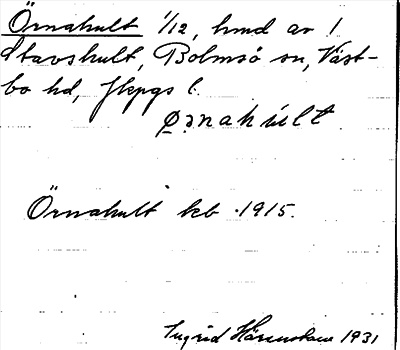 Örnahult 1/12, hmd av 1
Stavshult, Bolmsö sn, Väst-
bo hd, Jkpgs l.
ørnahult
Örnahult kb 1915.
Ingrid 1931